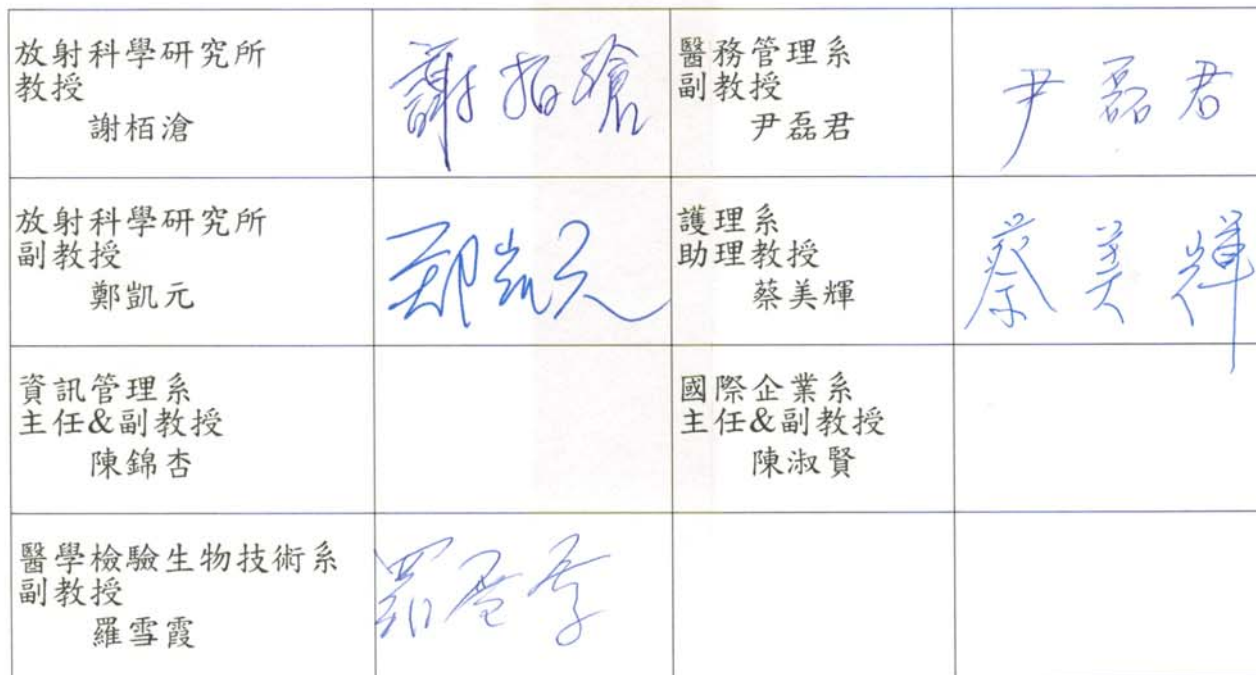 放射科學研究所
教授
謝栢滄
謝栢滄
醫務管理系
副教授
尹磊君
尹磊君
放射科學研究所
副教授
鄭凱元
郑凱元
護理系
助理教授
蔡美輝
蔡美輝
資訊管理系
主任&副教授
陳錦杏
國際企業系
主任&副教授
陳淑賢
醫學檢驗生物技術系
副教授
羅雪霞